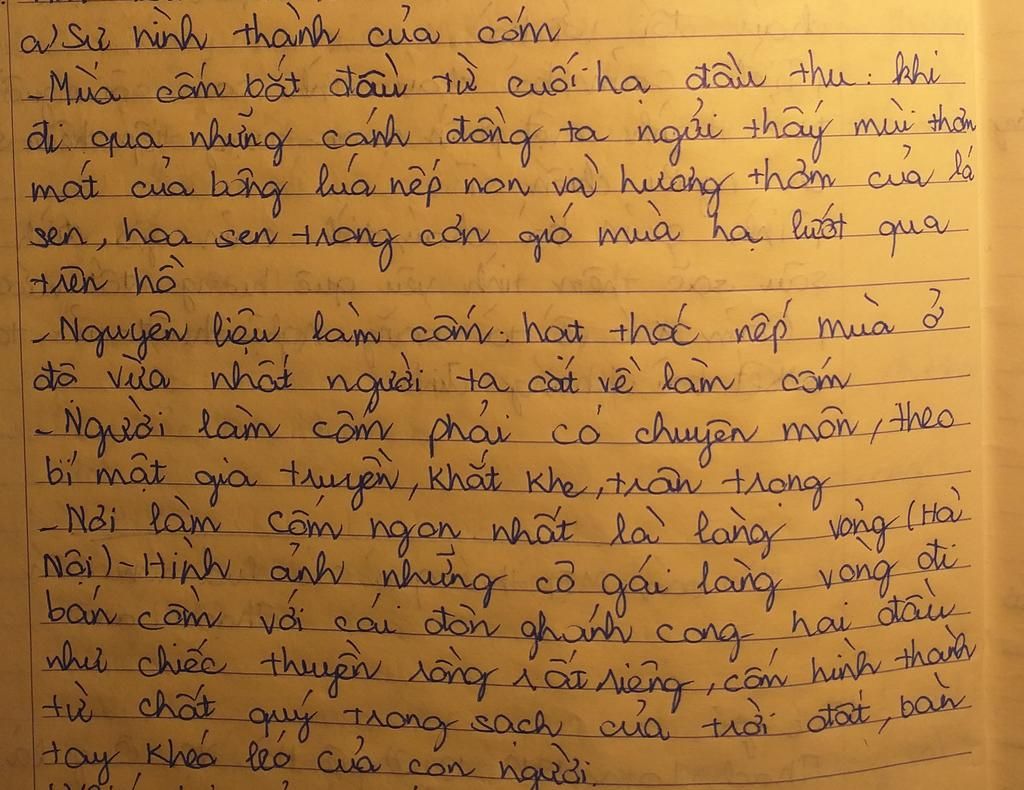 a) Sự hình thành của cốm
- Mùa cốm bắt đầu từ cuối hạ đầu thu. khi
đi qua những cánh đồng ta ngửi thấy mùi thơm
mát của bông lúa nếp non và hương thơm của lá
sen, hoa sen trong cơn gió mùa hạ lướt qua
trên hồ
- Nguyên liệu làm cốm: hạt thóc nếp mùa ở
độ vừa nhất người ta cắt về làm cốm
- Người làm cốm phải có chuyên môn, theo
bí mật gia truyền, khắt khe, trân trọng
- Nơi làm cốm ngon nhất là làng vòng (Hà
Nội) - Hình ảnh những cô gái làng vòng đi
bán cốm với cái đòn ghánh cong hai đầu
như chiếc thuyền rồng rất riêng, cốm hình thành
từ chất quý trong sạch của trời đất, bàn
tay khéo léo của con người.